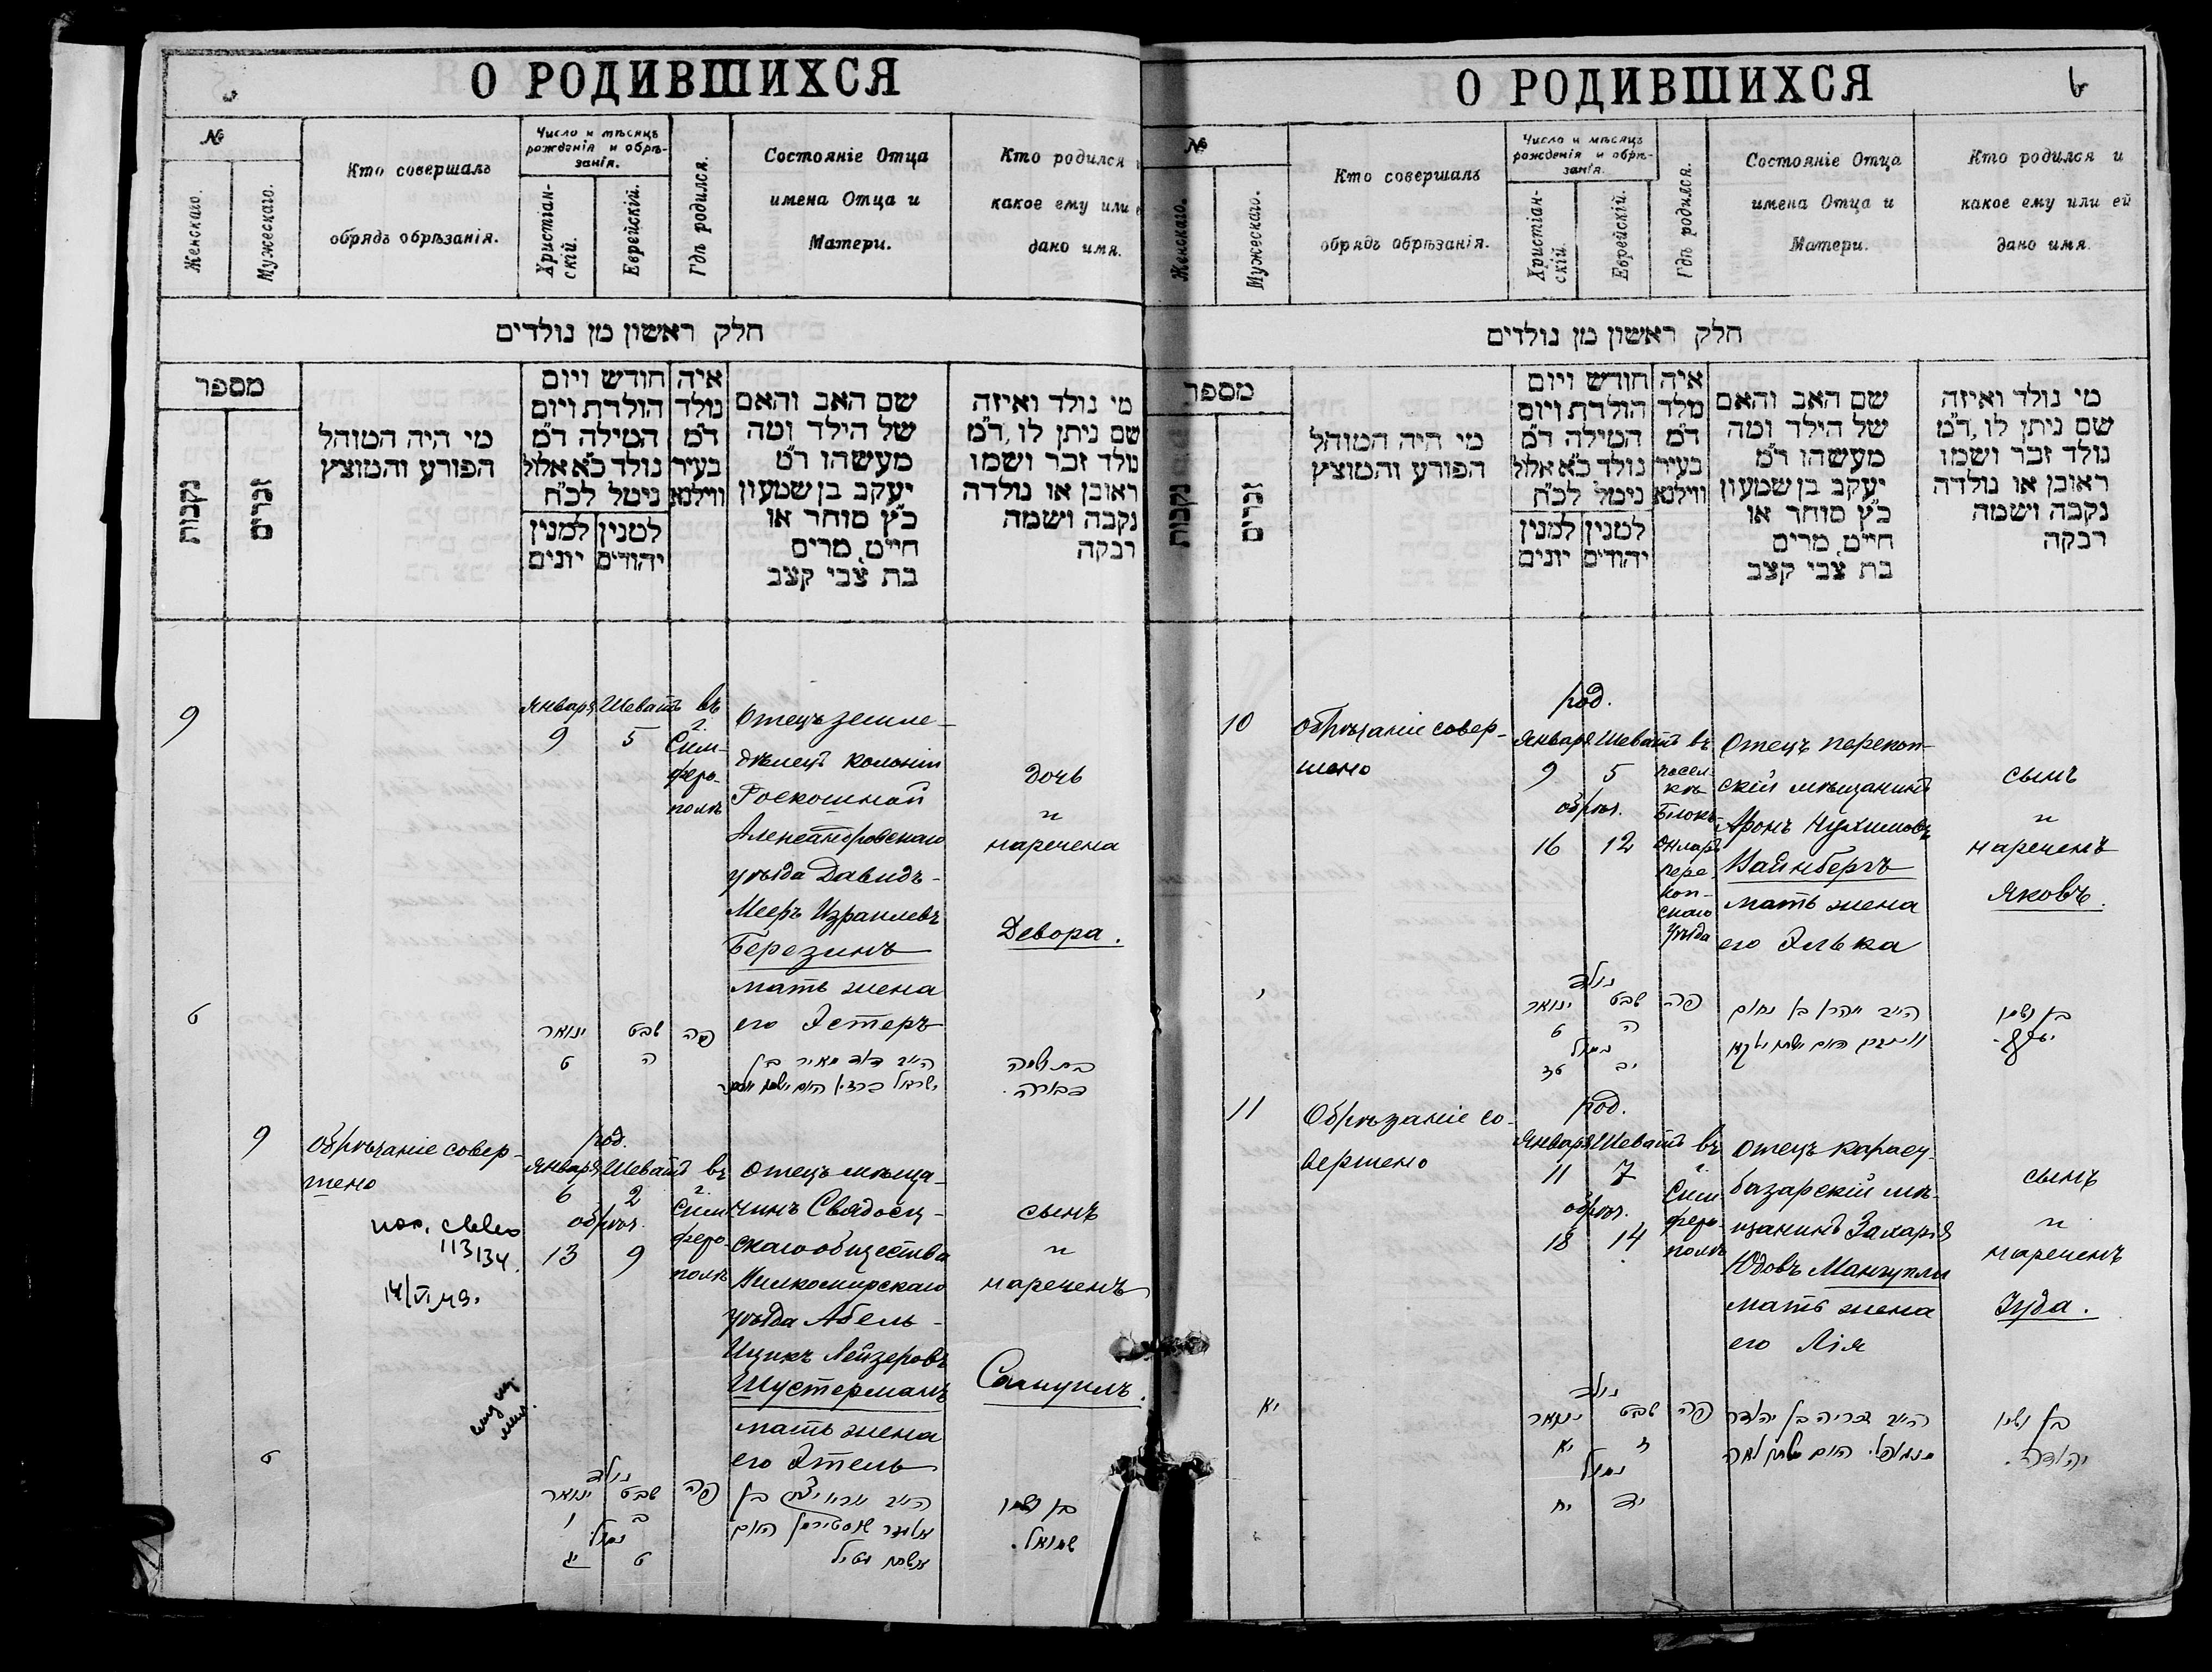 О РОДИВШИХСЯ
№
Женскаго.
Мужескаго.
Кто совершалъ
обрядъ обрѣзанія.
Число и мѣсяцъ
рожденія и обрѣ-
занія.
Христіан-
скій.
Еврейскій.
Гдѣ родился.
Состояніе Отца
имена Отца и
Матери.
Кто родился
какое ему или
дано имя.
חלק ראשון מן נולדים
מספר
נקבות
זכרים
מי היה המוהל
הפורע והמוצץ
חודש ויום
הולדת ויום
המילה ד"מ
נולד כ"א אלול
נימל לכ"ח
למנין יהודים
למנין יונים
איה
נולד
ד"מ
בעיר
ווילנא
שם האב והאם
של הילד ומה
מעשהו ד"מ
יעקב בן שמעון
כ"ץ סוחר או
חייט, מרים
בת צבי קצב
מי נולד ואיזה
שם ניתן לו, ד"מ
נולד זכר ושמו
ראובן או נולדה
נקבה ושמה
רבקה
9
Января Шеватъ
9 5
въ
г.
Сим-
феро-
полѣ
Отецъ земле-
дѣлецъ колоніи
Роскошной
Александровскаго
уѣзда Давидъ-
Мееръ Израилевъ
Березинъ
мать жена
его Эстеръ
дочь
и
наречена
Девора.
ט
ינואר שבט פה
ט ה
הא' דוד מאיר בן
בת ושמה
דבורה.
9
Обрѣзаніе совер-
шено
113134
14/VI 49.
род.
Января Шеватъ
6 2
обрѣз.
13 9
въ
г.
Сим
феро-
полѣ
Отецъ мѣща-
нинъ Свядосц-
скаго общества
Вилкомирскаго
уѣзда Абель-
Ицикъ Лейзеровъ
Шустерманъ
мать жена
его Этель
сынъ
и
нареченъ
Самуилъ.
ט
נולד
ינואר שבט פה
ו ב
נמול
יג ט
בן ושמו
שמואל.
О РОДИВШИХСЯ
6
№
Женскаго.
Мужескаго.
Кто совершалъ
обрядъ обрѣзанія.
Число и мѣсяцъ
рожденія и обрѣ-
занія.
Христіан-
скій.
Еврейскій.
Гдѣ родился.
Состояніе Отца
имена Отца и
Матери.
Кто родился и
какое ему или ей
дано имя.
חלק ראשון מן נולדים
מספר
נקבות
זכרים
מי היה המוהל
הפורע והמוצץ
חודש ויום
הולדת ויום
המילה ד"מ
נולד כ"א אלול
נימל לכ"ח
למנין יהודים
למנין יונים
איה
מלד
ד"מ
בעיר
ווילנא
שם האב והאם
של הילד ומה
מעשהו ד"מ
יעקב בן שמעון
כ"ץ סוחר או
חייט, מרים
בת צבי קצב
מי נולד ואיזה
שם ניתן לו, ד"מ
נולד זכר ושמו
ראובן או נולדה
נקבה ושמה
רבקה
10
Обрѣзаніе совер-
шено
род.
Января Шеватъ
9 5
обрѣз.
16 12
въ
посел-
кѣ
Біюкъ-
Онларъ
пере
коп-
скаго
уѣзда
Отецъ перекоп-
скій мѣщанинъ
Аронъ Нухимовъ
Вайнбергъ
мать жена
его Элька
сынъ
и
нареченъ
Яковъ.
י
נולד
ינואר שבט פה
ט ה
נמול
טז יב
בן ושמו
יעקב.
11
Обрѣзаніе со-
вершено
род.
Января Шеватъ
11 7
обрѣз.
18 14
въ
г.
Сим
феро-
полѣ
Отецъ карасу-
базарскій мѣ-
щанинъ Захарія
Юдовъ Мангупли
мать жена
его Лія
сынъ
и
нареченъ
Іуда.
יא
נולד
ינואר שבט פה
יא ז
נמול
יח יד
זכריה בן יהודה
בן ושמו
יהודה.